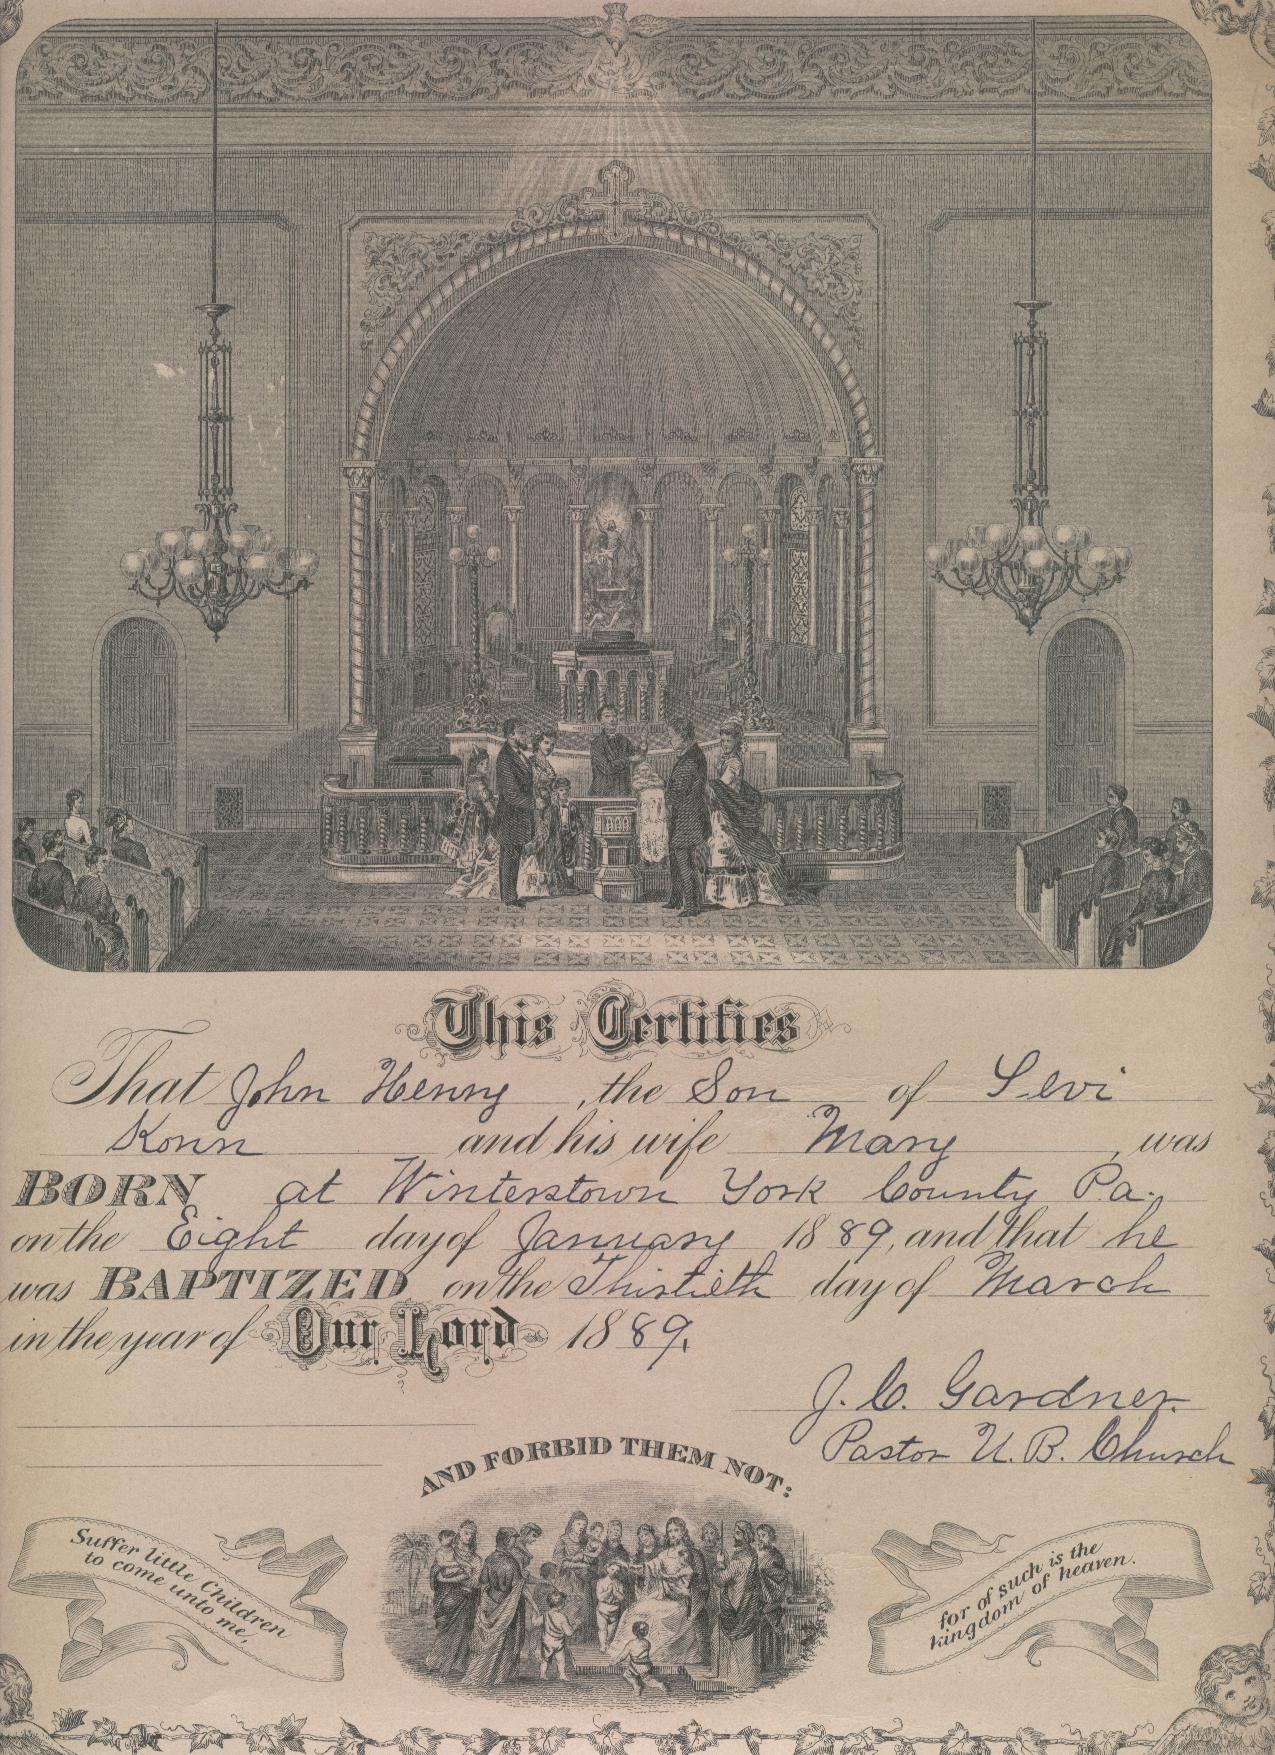 This Certifies
That John Henry, the Son of Levi
Konn and his wife Mary, was
BORN at Winterstown York County Pa.
on the Eight day of January 1889, and that he
was BAPTIZED on the Thirtieth day of March
in the year of Our Lord 1889.
J. C. Gardner.
Pastor U. B. Church
AND FORBID THEM NOT:
Suffer little Children
to come unto me,
for of such is the
kingdom of heaven.